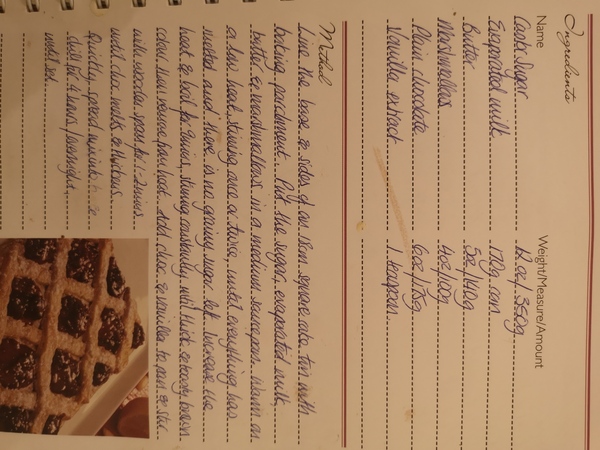 Ingredients
Name Weight/Measure/Amount
Caster Sugar 12oz/350g
Evaporated milk 170g can
Butter 5oz/140g
Marshmallows 4oz/100g
Plain chocolate 6oz/175g
Vanilla extract 1 teaspoon
Method
Line the base & sides of an 18cm square cake tin with
baking parchment. Put the sugar, evaporated milk,
butter & marshmallows in a medium saucepan. Warm on
a low heat, stirring once or twice, until everything has
melted and there is no grainy sugar left. Increase the
heat & boil for mins, stirring constantly, until thick & brown
colour then remove from heat. Add choc & vanilla to pan & stir
with wooden spoon for 1-2mins
until choc melts & thickens.
Quickly spread mixture in tin
chill for 4 hours/overnight,
until set.